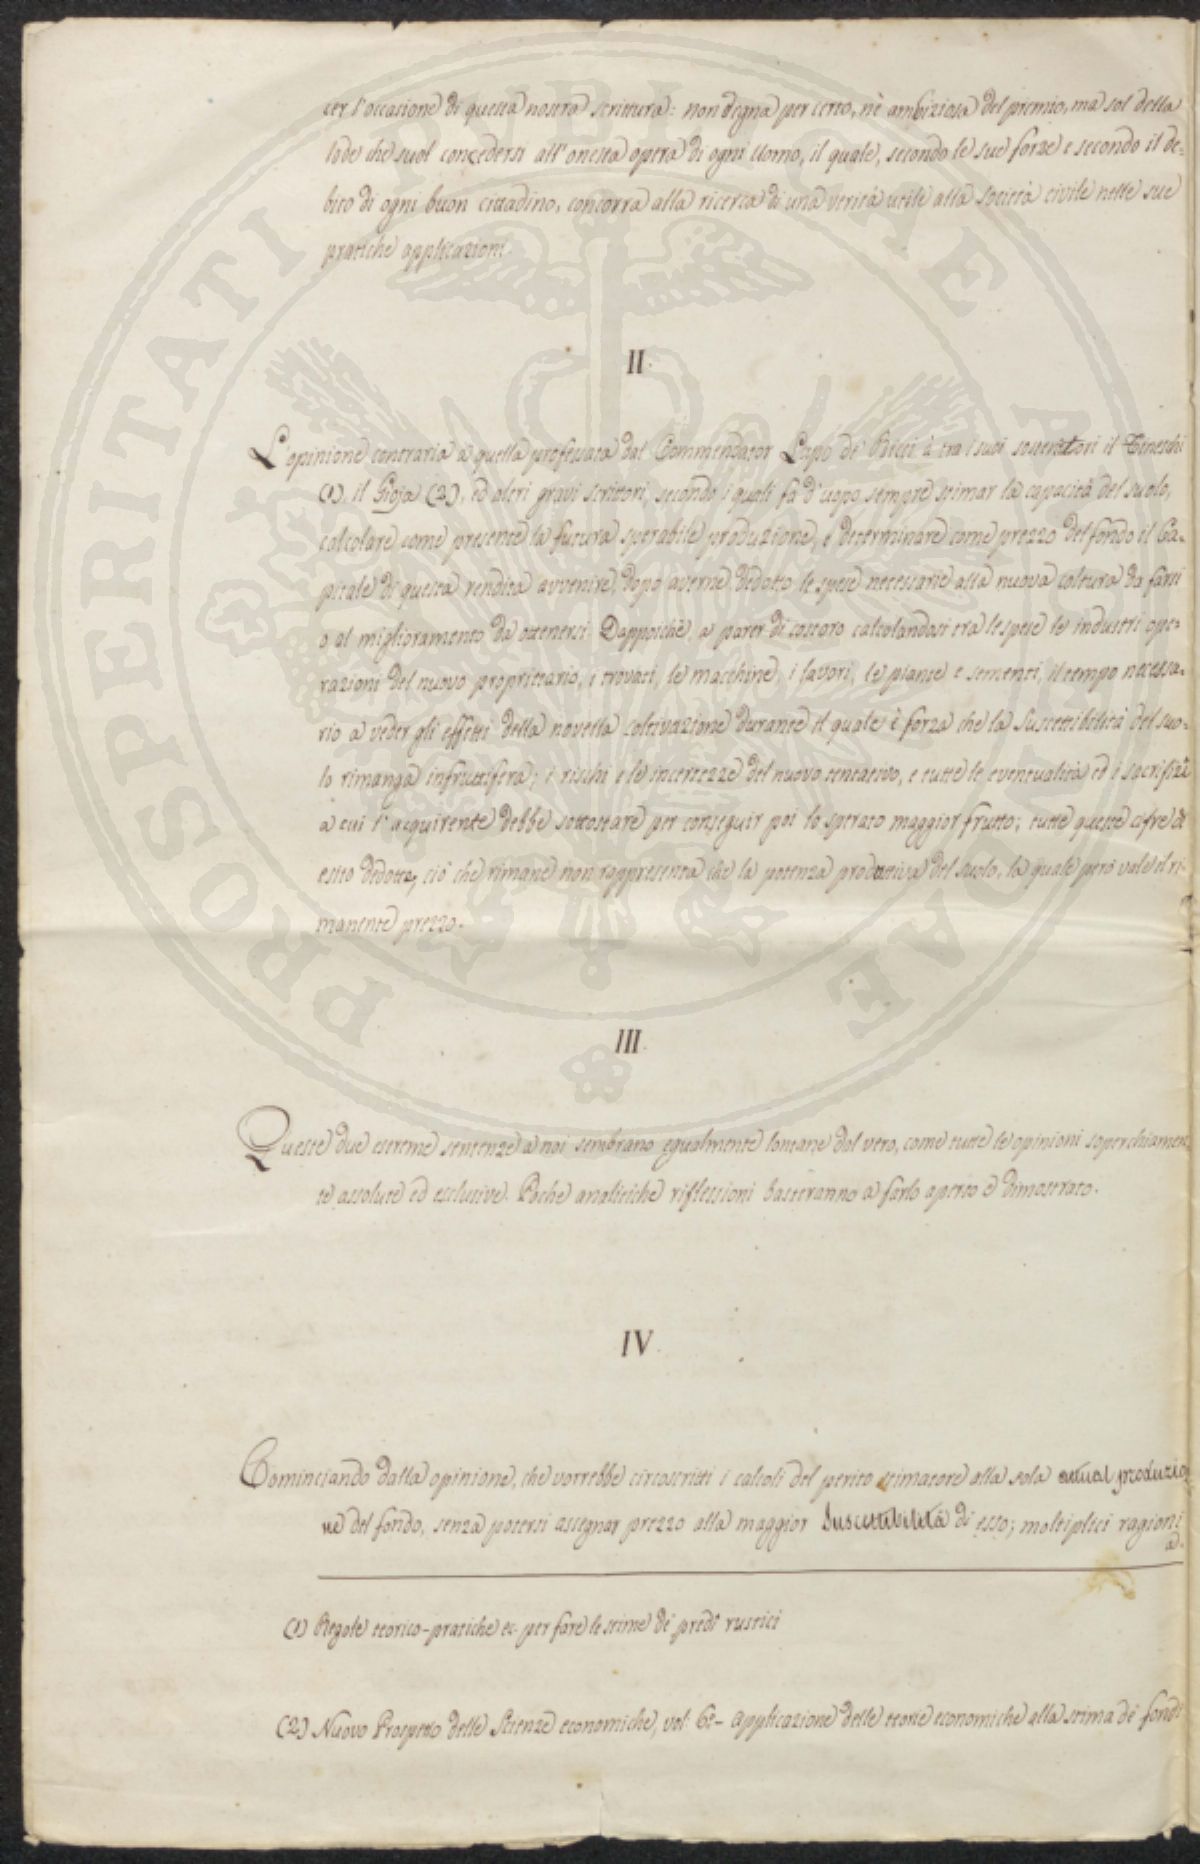 cer l'occasione di questa nostra scrittura: non degna per certo, nè ambiziosa del premio, ma sol della
lode che suol concedersi all'onesta opera di ogni Uomo, il quale, secondo le sue forze e secondo il de-
bito di ogni buon cittadino, concorra alla ricerca di una verità utile alla società civile nelle sue
pratiche applicazioni.
II.
L'opinione contraria a quella professata dal Commendator Lapo de' Ricci à tra i suoi sostentori il
(1), il Gioja (2), ed altri gravi scrittori, secondo i quali fa d'uopo sempre stimar la capacità del suolo,
calcolare come presente la futura sperabile produzione, e determinare come prezzo del fondo il Ca-
pitale di questa rendita avvenire, dopo averne dedotto le spese necessarie alla nuova coltura da farsi
o al miglioramento da ottenersi. Dappoichè, a parer di costoro calcolandosi tra le spese le industri ope-
razioni del nuovo proprietario, i trovati, le macchine, i lavori, le piante e sementi, il tempo necessa-
rio a veder gli effetti della novella coltivazione durante il quale è forza che la Suscettibilità del suo-
lo rimanga infruttifera; i rischi e le incertezze del nuovo tentativo, e tutte le eventualità ed i sacrifizî
a cui l'acquirente debbe sottostare per conseguir poi lo sperato maggior frutto; tutte queste cifre di
esito dedotte, ciò che rimane non rappresenta che la potenza produttiva del suolo, la quale però vale il ri-
manente prezzo.
III.
Queste due estreme sentenze a noi sembrano egualmente lontane dal vero, come tutte le opinioni soperchiamen-
te assolute ed esclusive. Poche analitiche riflessioni basteranno a farlo aperto e dimostrato.
IV.
Cominciando dalla opinione, che vorrebbe circoscritti i calcoli del perito stimatore alla sola attual produzio-
ne del fondo, senza potersi assegnar prezzo alla maggior Suscettibilità di esso; moltiplici ragioni
a-
(1) Regole teorico-pratiche ec. per fare le stime de' predî rustici
(2) Nuovo Prospetto delle Scienze economiche, vol: 6º - Applicazione delle teorie economiche alla stima de' fondi
PROSPERITATI PUBLICAE AUGENDAE